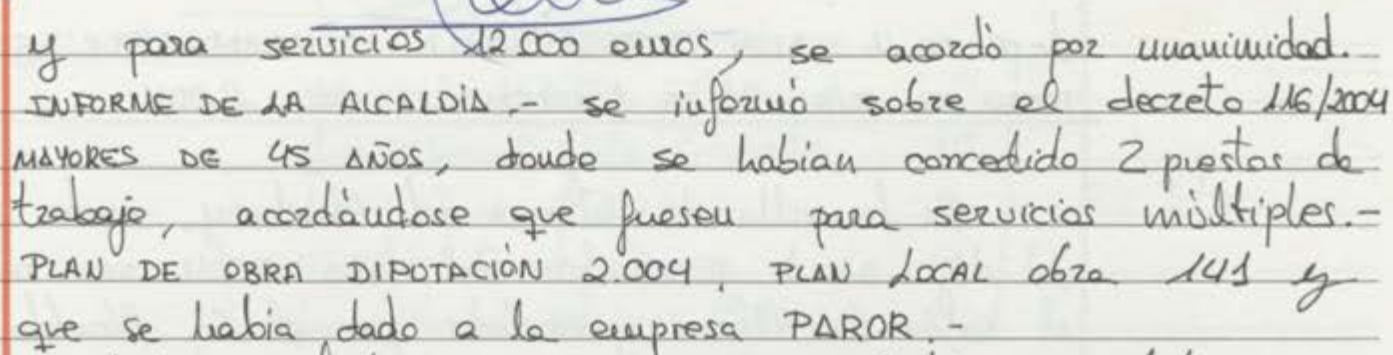 y para servicios 12.000 euros, se acordò por unanimidad.
INFORME DE LA ALCALDÌA.- se informò sobre el decreto 116/2004
MAYORES DE 45 AÑOS, donde se habian concedido 2 prestos de
trabajo, acordàndose que fuesen para servicios mùltiples.-
PLAN DE OBRA DIPUTACIÒN 2.004. PLAN LOCAL obra 141 y
que se habia dado a la empresa PAROR.-